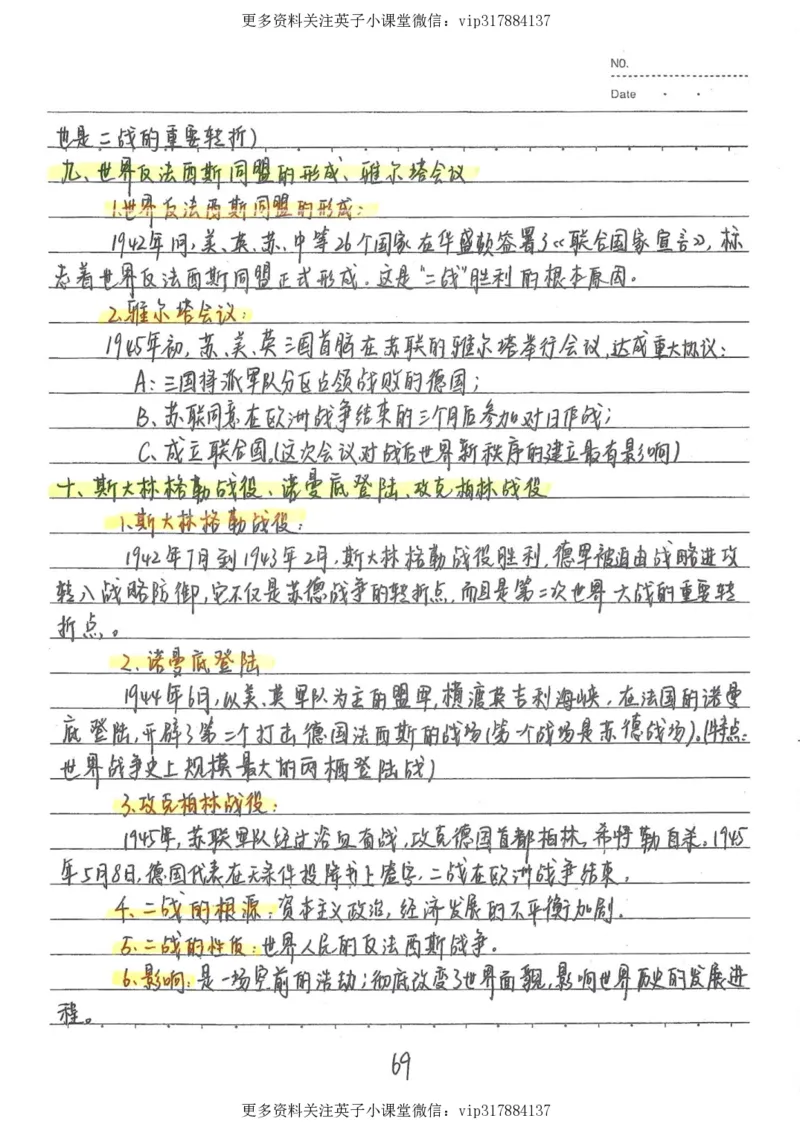 更多资料关注英子小课堂微信：vip317884137
NO.
Date · ·
也是二战的重要转折)
九、世界反法西斯同盟的形成、雅尔塔会议
1.世界反法西斯同盟的形成：
1942年间,美、英、苏、中等26个国家在华盛顿签署了《联合国家宣言》,标
志着世界反法西斯同盟正式形成。这是“二战”胜利的根本原因。
2.雅尔塔会议：
1945年初,苏、美、英三国首脑在苏联的雅尔塔举行会议,达成重大协议：
A：三国将派军队分区占领战败的德国；
B、苏联同意在欧洲战争结束的三个月后参加对日作战；
C、成立联合国。(这次会议对战后世界新秩序的建立最有影响)
十、斯大林格勒战役、诺曼底登陆、攻克柏林战役
1.斯大林格勒战役：
1942年7月到1943年2月,斯大林格勒战役胜利,德军被迫由战略进攻
转入战略防御,它不仅是苏德战争的转折点,而且是第二次世界大战的重要转
折点。
2.诺曼底登陆
1944年6月,以美、英军队为主的盟军,横渡英吉利海峡,在法国的诺曼
底登陆,开辟了第二个打击德国法西斯的战场(第一个战场是苏德战场)。(特点：
世界战争史上规模最大的两栖登陆战)
3.攻克柏林战役：
1945年,苏联军队经过浴血奋战,攻克德国首都柏林。希特勒自杀。1945
年5月8日,德国代表在无条件投降书上签字,二战在欧洲战争结束。
4、二战的根源：资本主义政治,经济发展的不平衡加剧。
5、二战的性质：世界人民的反法西斯战争。
6、影响：是一场空前的浩劫；彻底改变了世界面貌,影响世界历史的发展进
程。
69
更多资料关注英子小课堂微信：vip317884137